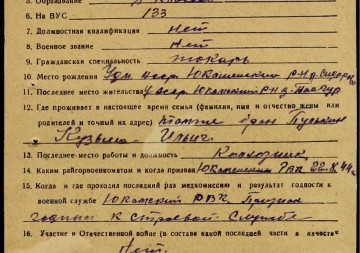 5. Образование
6. На ВУС 133
7. Должностная квалификация Нет
8. Военное звание Нет
9. Гражданская специальность токарь
10. Место рождения Удм. р-н д.
11. Последнее место жительства р-н д.
12. Где проживает в настоящее время семья (фамилия, имя и отчество жены или
родителей и точный их адрес) брат
Кузьма Ильич
13. Последнее место работы и должность Колхозник
14. Каким райгорвоенкоматом и когда призван РВК
15. Когда и где проходил последний раз медкомиссию и результат годности к
военной службе РВК. Признан
годным к строевой службе
16. Участие в Отечественной войне (в составе какой последней части в качеств
Нет.